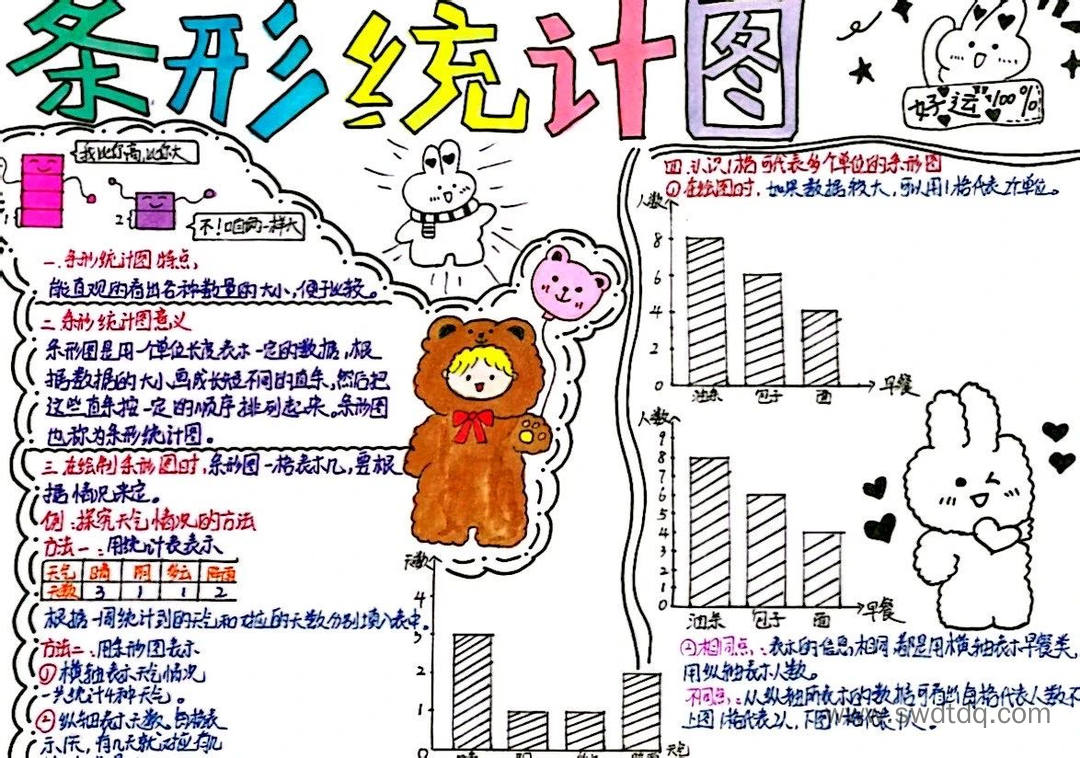 条形统计图
好运100%
我比你高,比你大
1
2
不!咱两一样大
一.条形统计图特点,
能直观的看出各种数量的大小,便于比较。
二.条形统计图意义
条形图是用一个单位长度表示一定的数据,根
据数据的大小画成长短不同的直条,然后把
这些直条按一定的顺序排列起来。条形图
也称为条形统计图。
三.在绘制条形图时,条形图一格表示几,要根
据情况来定。
例:探究天气情况的方法
方法一:用统计表表示
天气 晴 阴 多云 阵雨
天数 3 1 1 2
根据一周统计到的天气和对应的天数分别填入表中。
方法二:用条形图表示
①横轴表示天气情况
一共统计4种天气。
②纵轴表示天数,每格表
示1天,有几天就对应有几
天数
4
3
2
1
0
天气
四.认识1格可代表多个单位的条形图
①在绘图时,如果数据较大,可以用1格代表2个单位。
人数
8
6
4
2
0
油条 包子 面
早餐
人数
9
8
7
6
5
4
3
2
1
0
油条 包子 面
早餐
②相同点:表示的信息相同,都是用横轴表示早餐类,
用纵轴表示人数。
不同点:从纵轴所表示的数据可看出每格代表人数不
上图1格代表2人,下图1格代表1人。
www.swdtdq.com